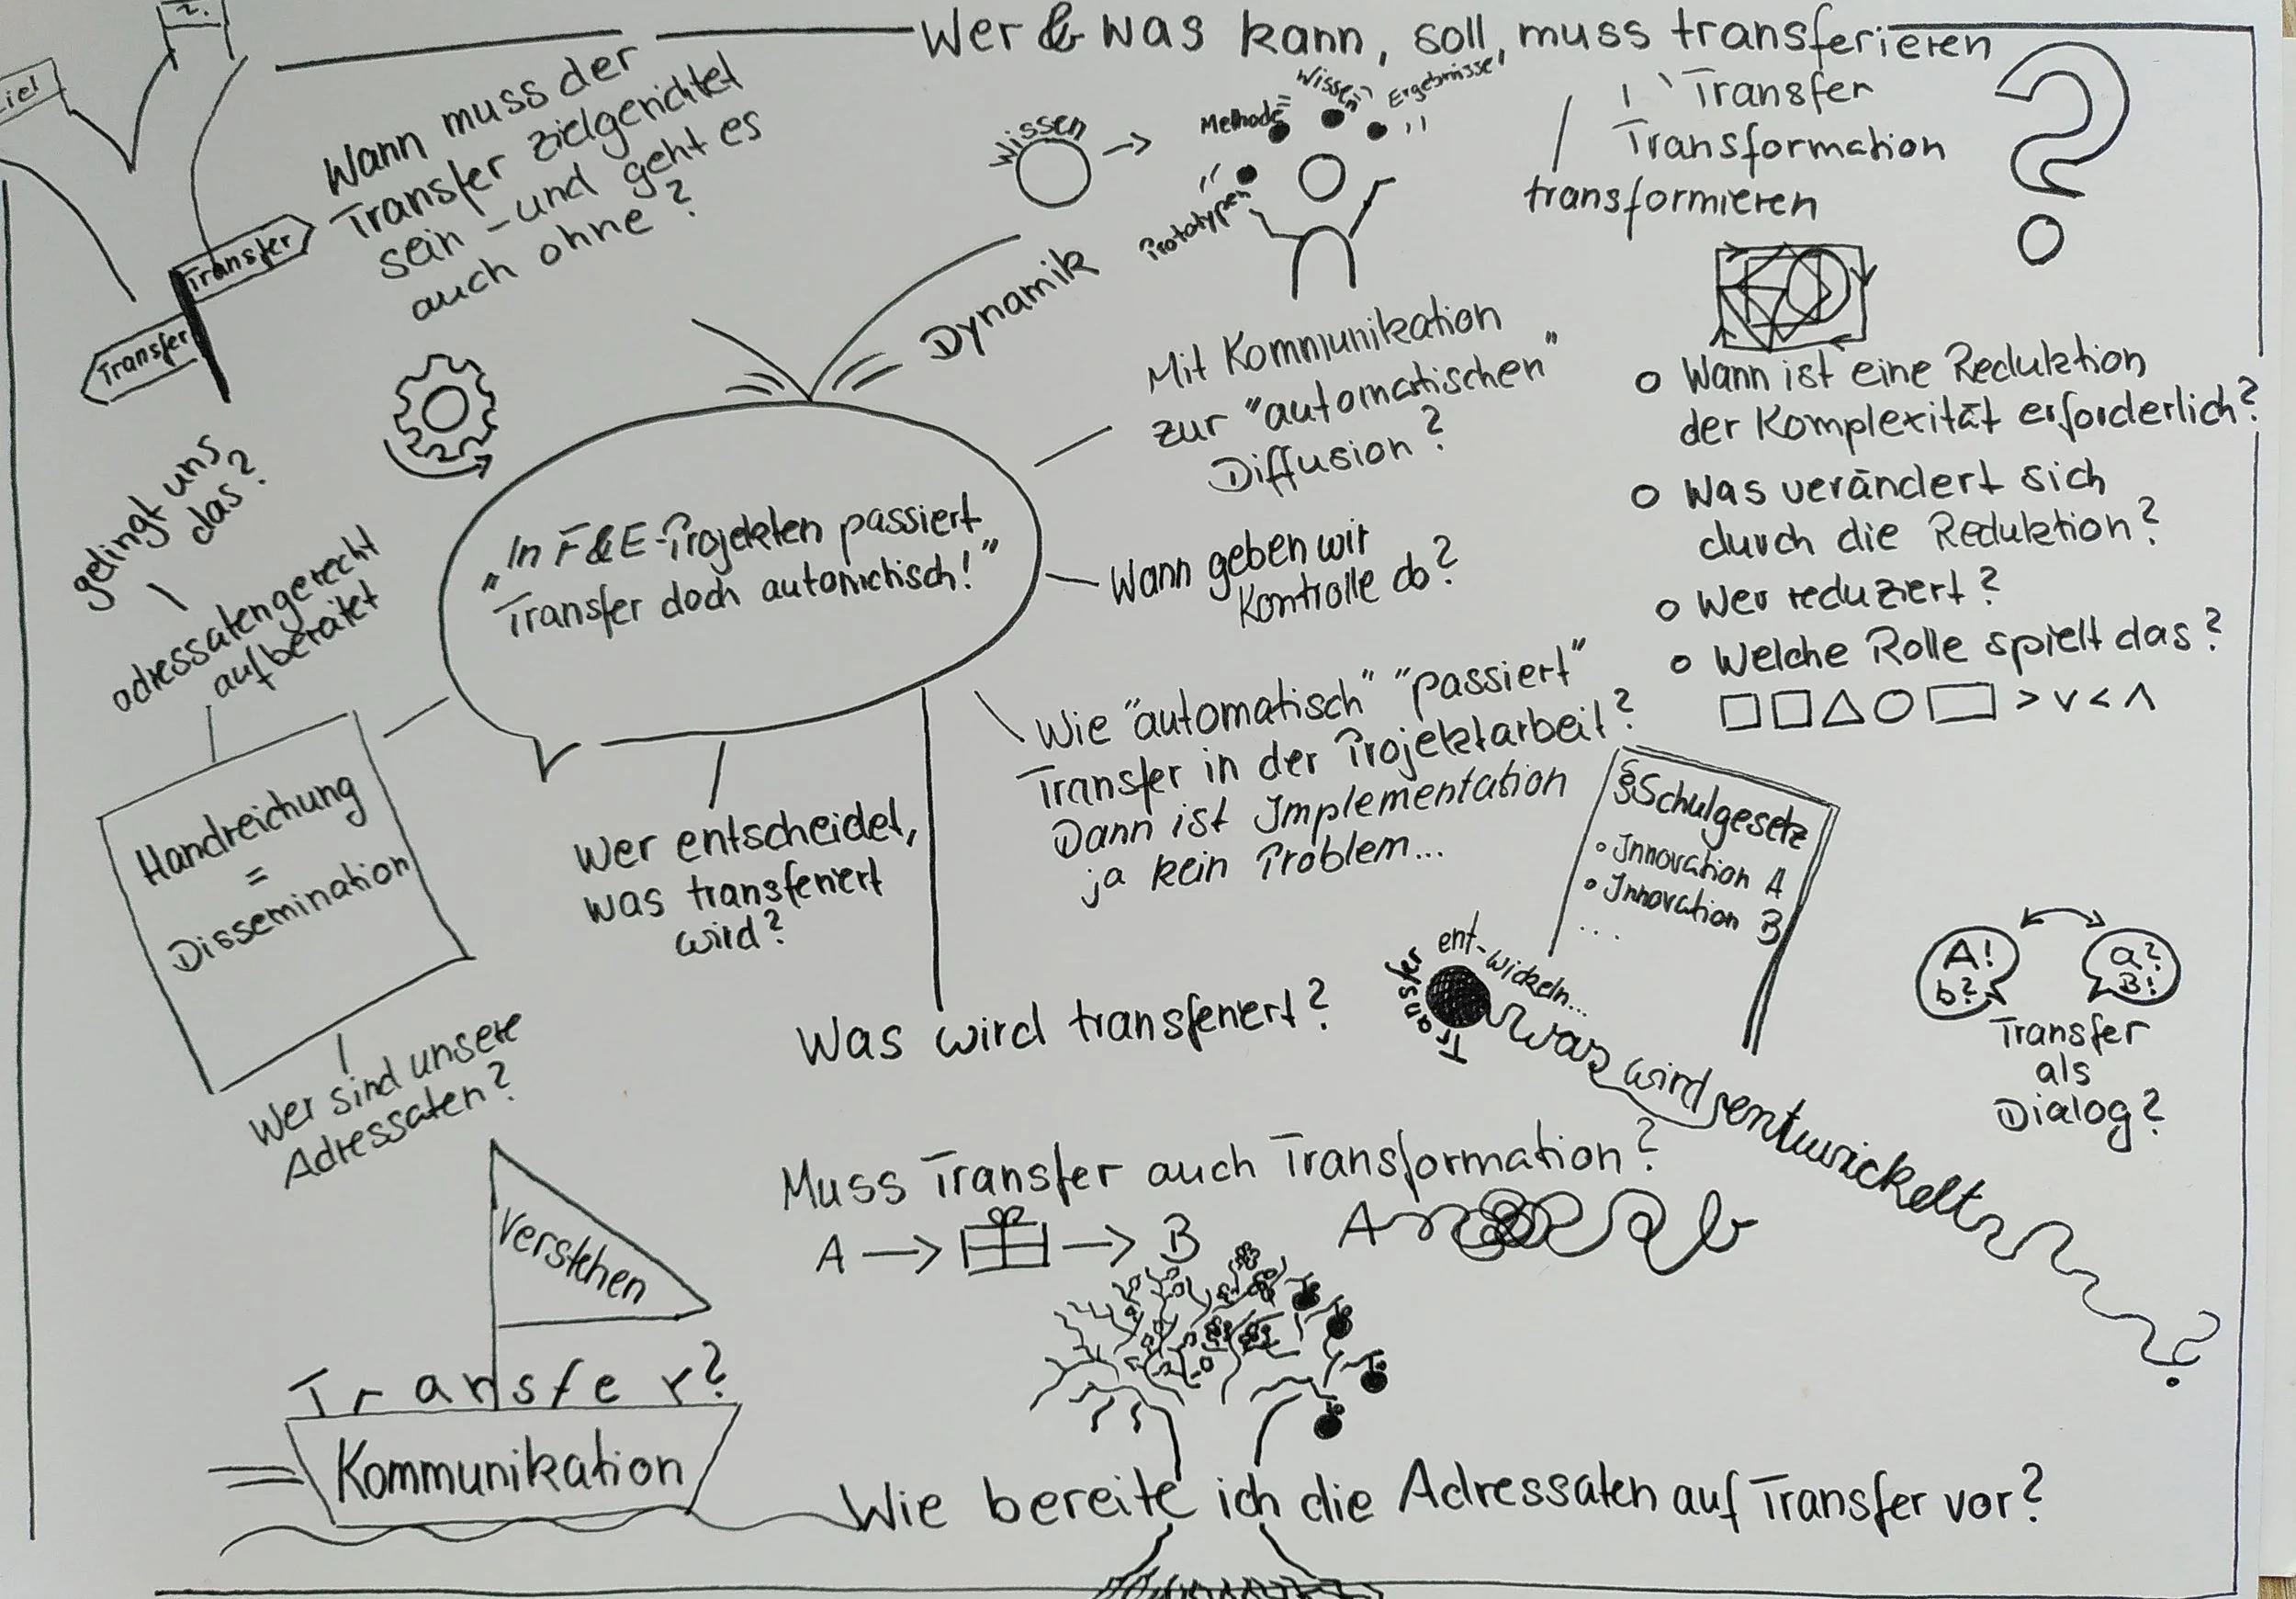 Wer & was kann, soll, muss transferieren
Transfer
Transformation
transformieren
?
2.
iel
Transfer
Transfer
Wann muss der
Transfer zielgerichtet
sein - und geht es
auch ohne?
Dynamik
Wissen
Prototypen
Methode
Wissen
Ergebnisse
Mit Kommunikation
zur "automatischen"
Diffusion?
o Wann ist eine Reduktion
der Komplexität erforderlich?
o Was verändert sich
durch die Reduktion?
o Wer reduziert?
o Welche Rolle spielt das?
> v < ʌ
„In F&E-Projekten passiert
Transfer doch automatisch!"
Wann geben wir
Kontrolle ab?
Wie "automatisch" "passiert"
Transfer in der Projektarbeit?
Dann ist Implementation
ja kein Problem...
gelingt uns
das?
adressatengerecht
aufbereitet
Handreichung
=
Dissemination
Wer sind unsere
Adressaten?
Wer entscheidet,
was transferiert
wird?
Was wird transferiert?
§Schulgesetz
• Innovation A
• Innovation B
...
Transfer
ent-wickeln...
was wird entwickelt
?
A!
b?
a?
B!
Transfer
als
Dialog?
Muss Transfer auch Transformation?
A → → B
A b
Verstehen
Transfer?
Kommunikation
Wie bereite ich die Adressaten auf Transfer vor?